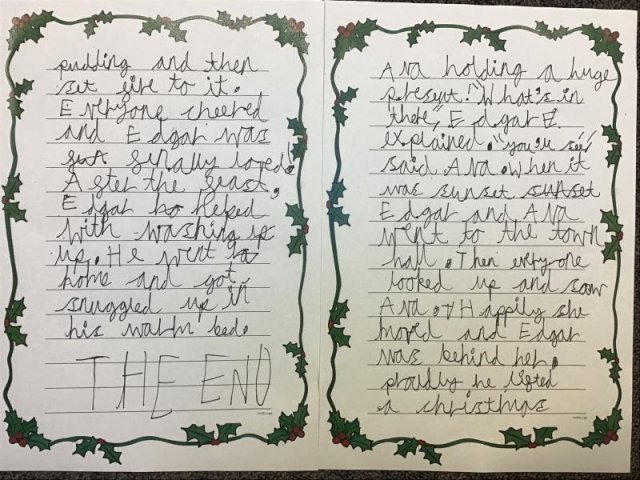 pudding and then
set fire to it.
Everyone cheered
and Edgar was
finally loved!
After the feast,
Edgar helped
with washing up
up. He went to
home and got
snuggled up in
his warm bed.
THE END
Ava holding a huge
present! "What's in
there," Edgar E
explained. "you'll see"
said Ava. When it
was sunset sunset
Edgar and Ava
went to the town
hall. Then everyone
looked up and saw
Ava. Happily she
moved and Edgar
was behind her.
proudly he lifted
a christmas